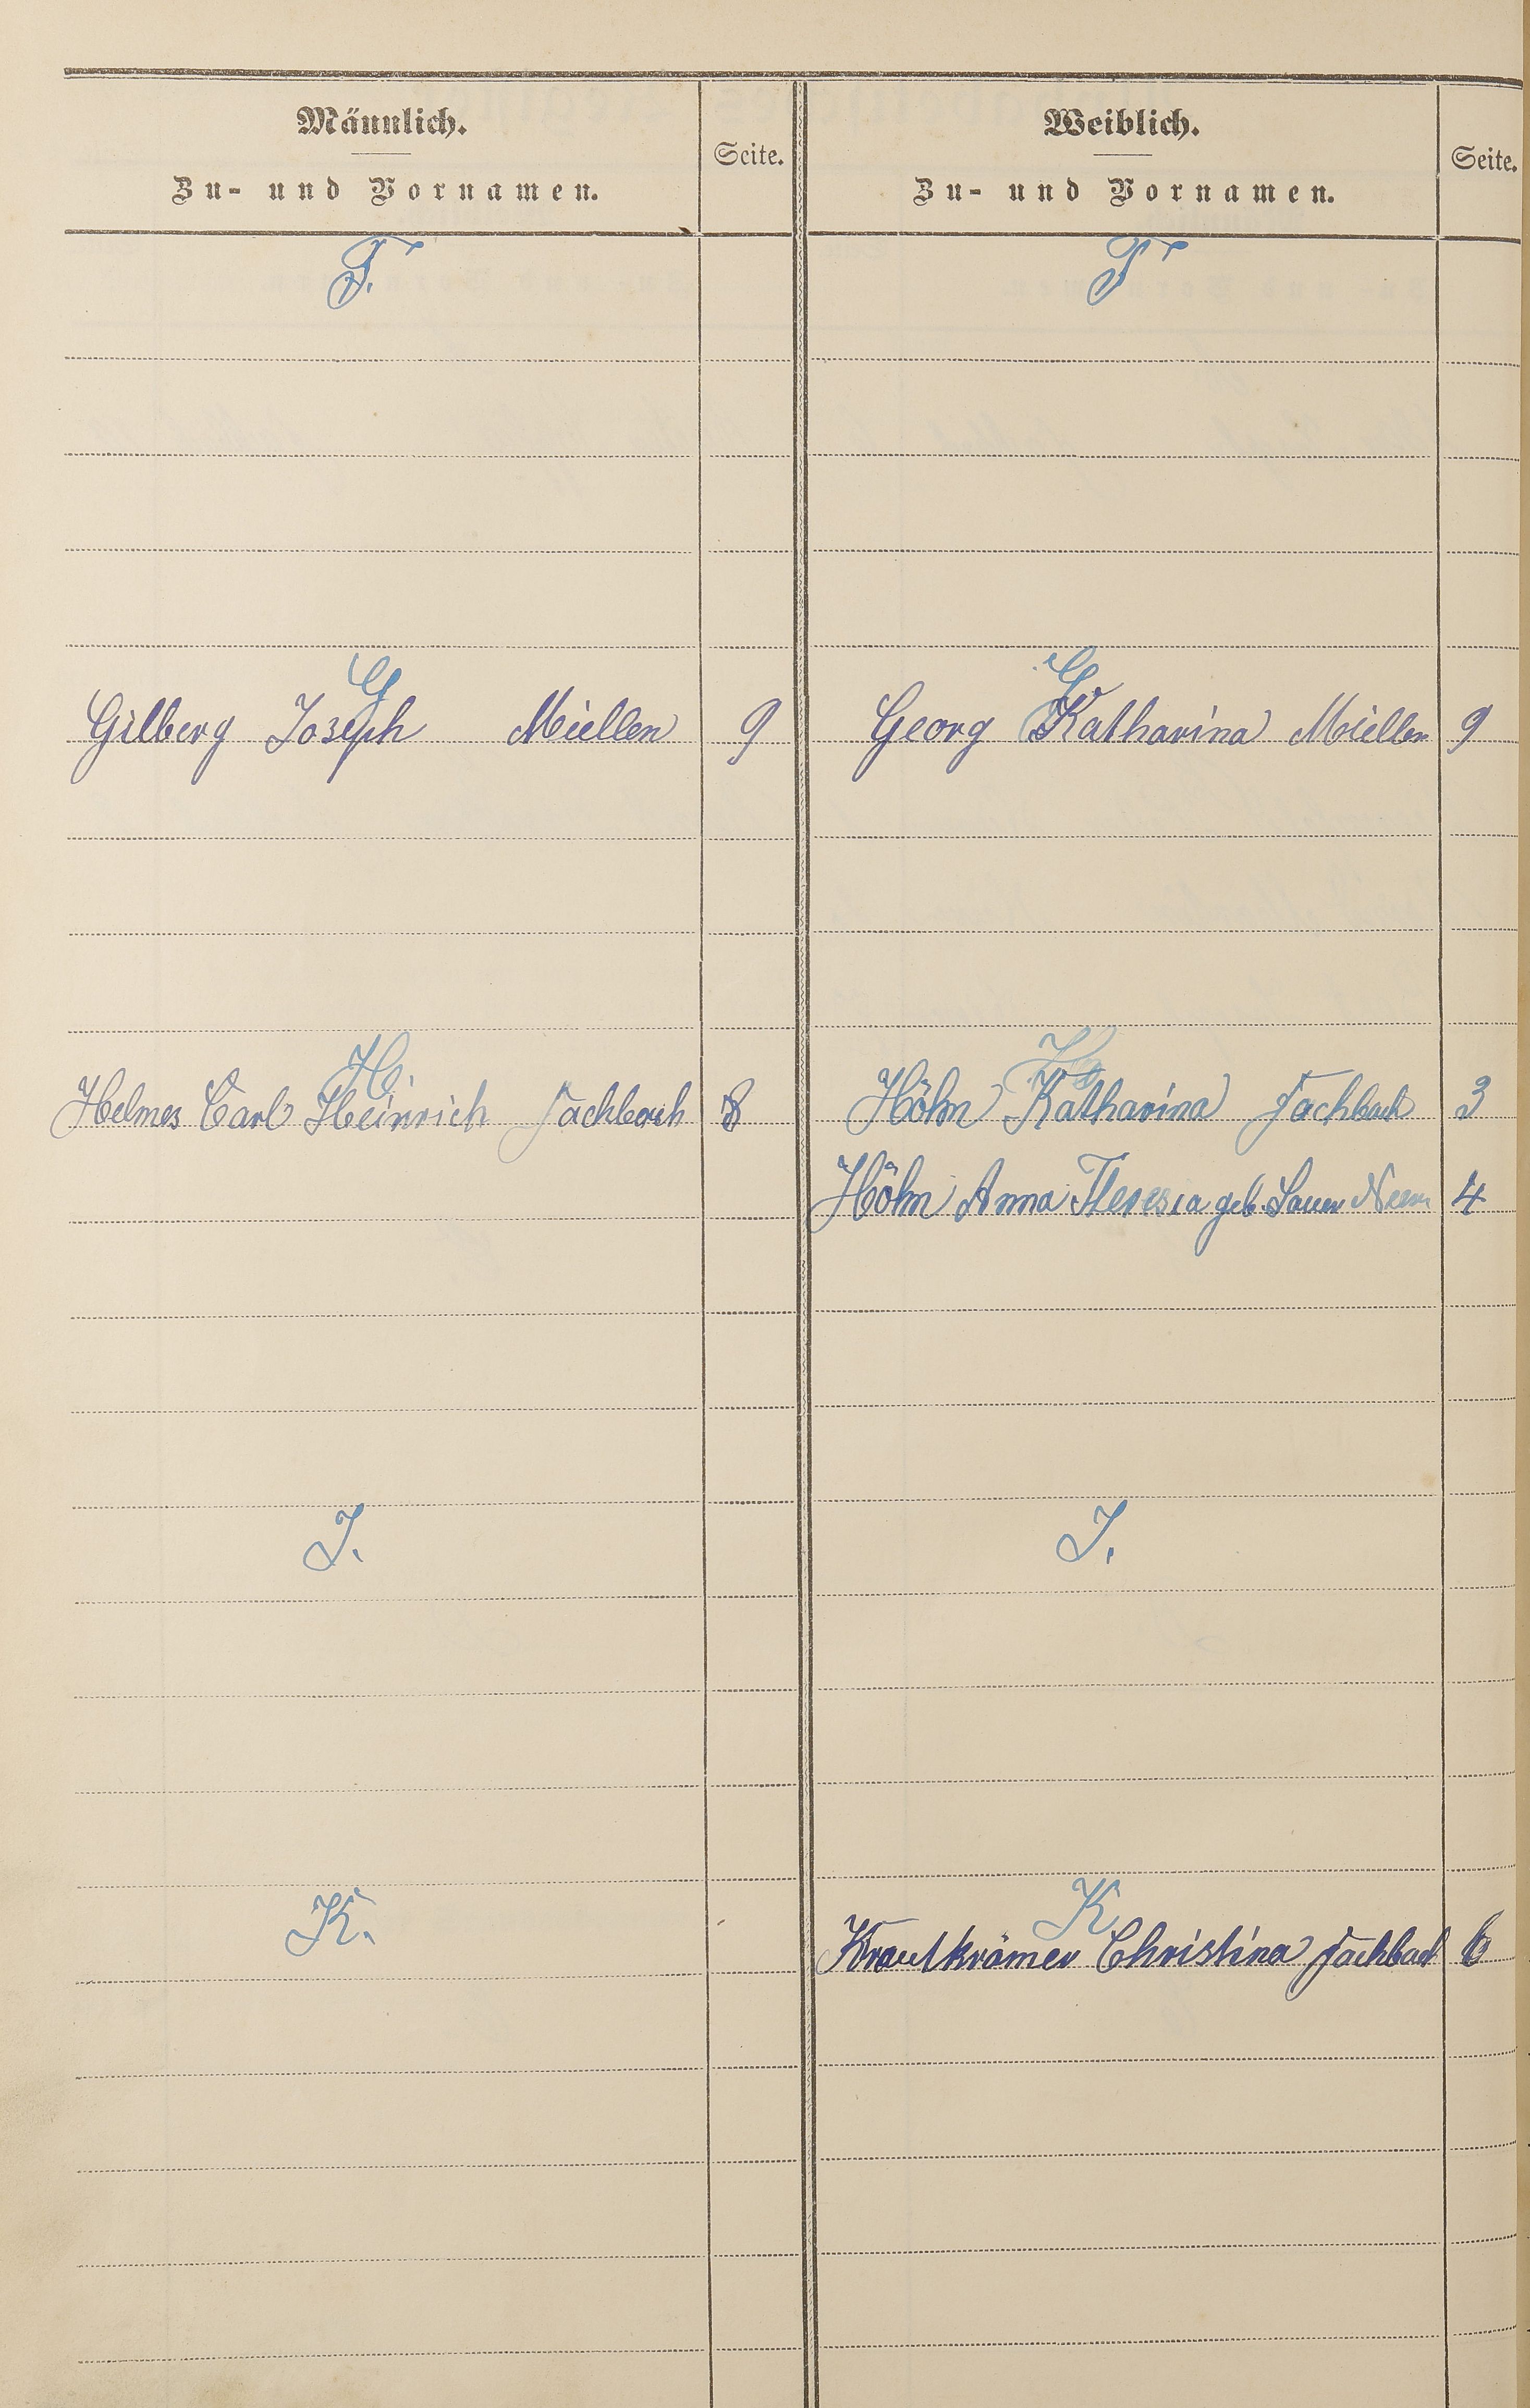 Männlich.
Zu- und Vornamen.
Seite.
Weiblich.
Zu- und Vornamen.
Seite.
F. F
G G
Gilberg Joseph Miellen 9 Georg Katharina Miellen 9
H. H
Helmes Carl Heinrich Fachbach 8 Höhn Katharina Fachbach 3
Höhn Anna Theresia geb. Sauer 4
J. J.
K. K
Krautkrämer Christina Fachbach 6